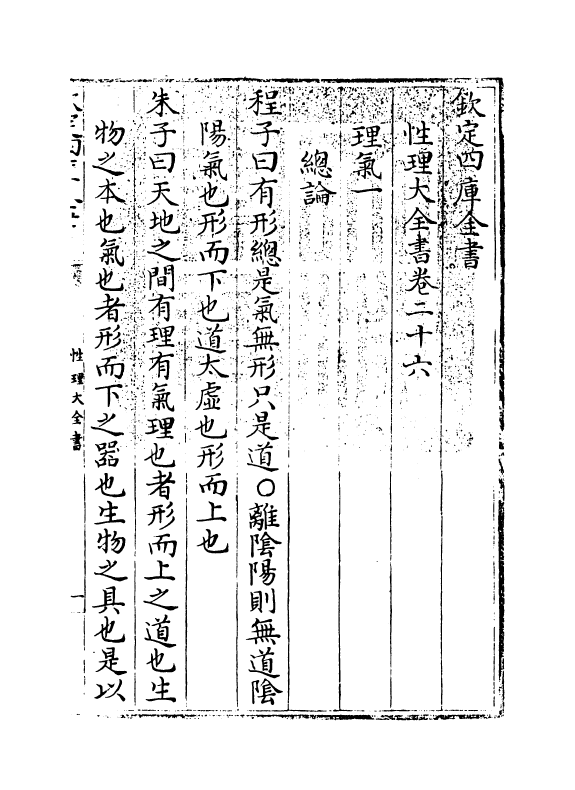 欽定四庫全書
性理大全書卷二十六
理氣一
總論
程子曰有形總是氣無形只是道○離陰陽則無道陰
陽氣也形而下也道太虛也形而上也
朱子曰天地之間有理有氣理也者形而上之道也生
物之本也氣也者形而下之器也生物之具也是以
性理大全書
一